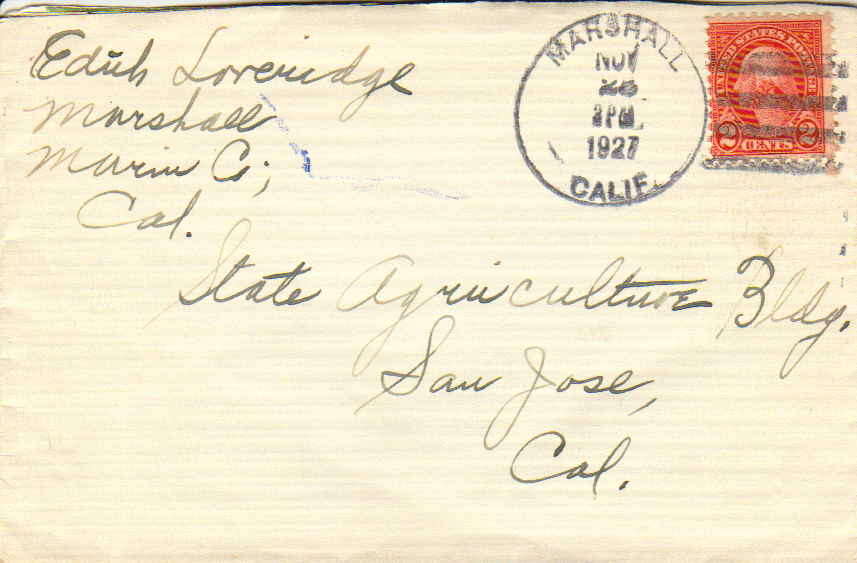 Edith Loveridge
Marshall
Marin Co,
Cal.
MARSHALL
NOV
2 PM
1927
CALIF.
UNITED STATES POSTAGE
2 CENTS 2
State Agriculture Bldg.
San Jose,
Cal.